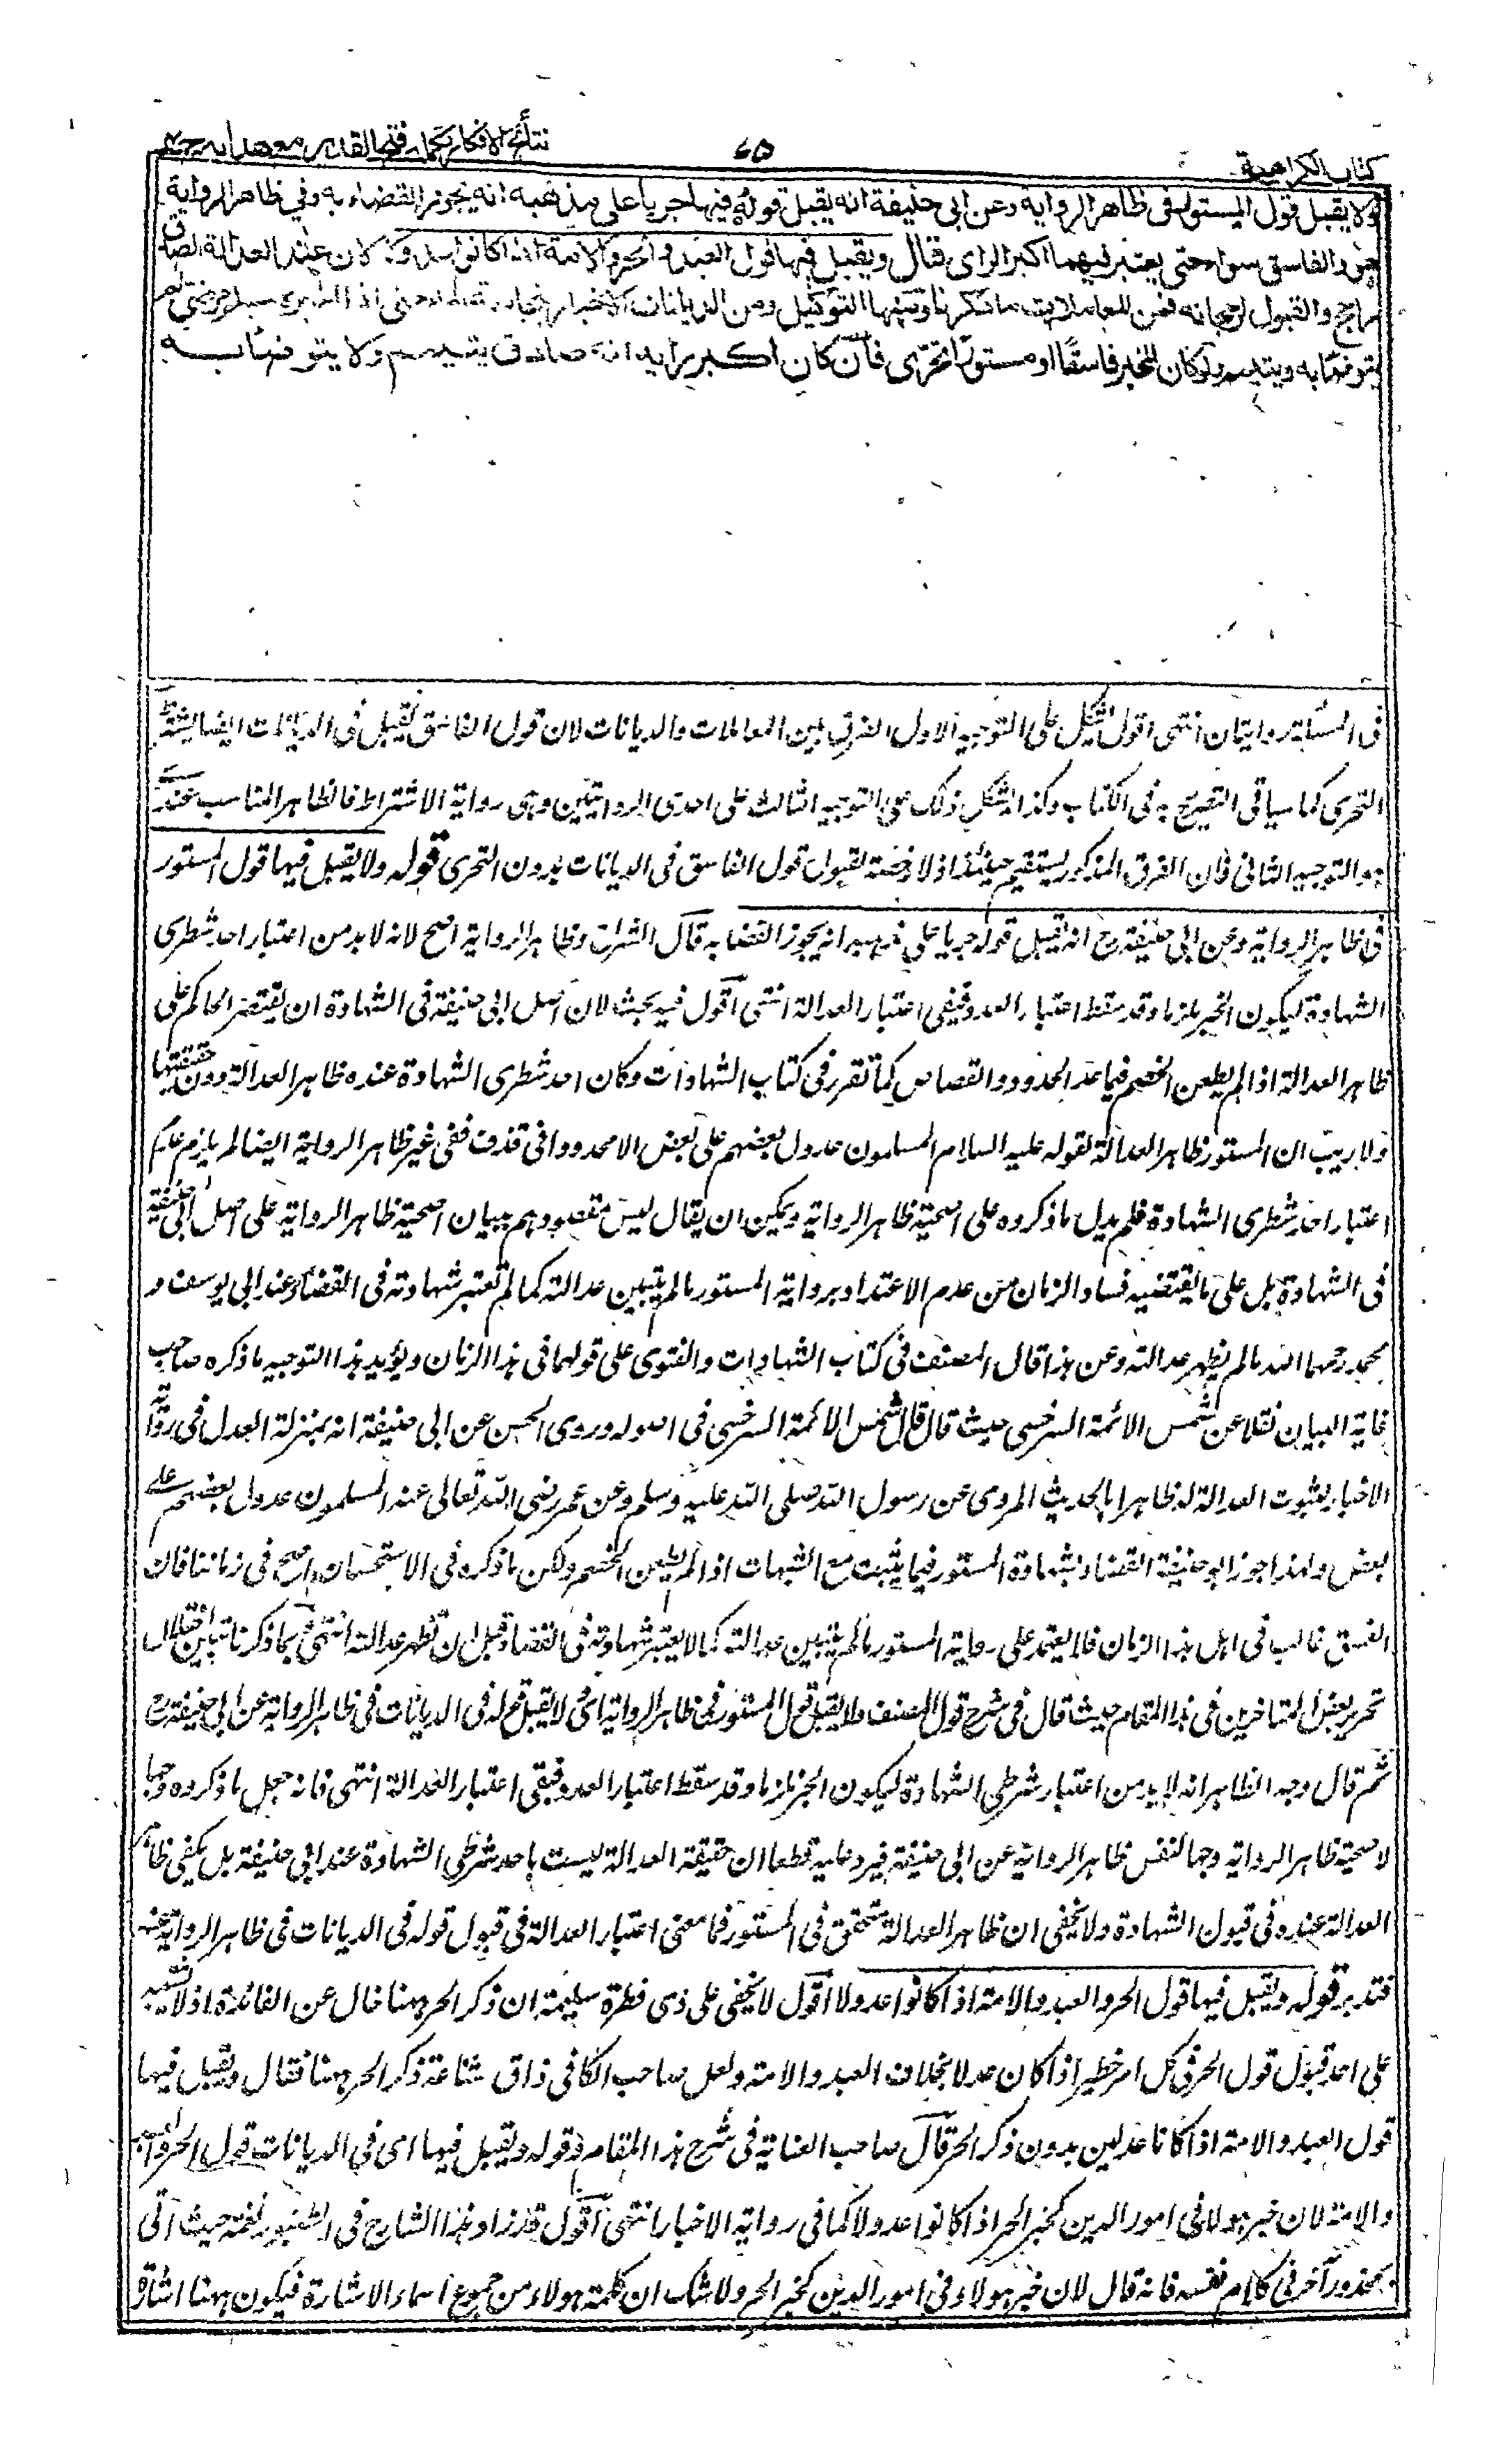 كتاب الكراهية
٧٥
نتائج الافكار تكملة فتح القدير مع هداية ج ٤
ولا يقبل قول المستور في ظاهر الرواية وعن ابي حنيفة انه يقبل قوله فيها جريا على مذهبه انه يجوز القضاء به وفي ظاهر الرواية
هو والفاسق سواء حتى يعتبر فيهما اكبر الراي قال ويقبل فيها قول العبد والحر والامة اذا كانوا عدولا لان عند العدالة الصدق
راجح والقبول لرجحانه فمن المعاملات ما ذكرناه ومنها التوكيل ومن الديانات الاخبار بنجاسة الماء حتى اذا اخبره مسلم مرضي لم
يتوضأ به ويتيمم ولو كان المخبر فاسقا او مستورا تحرى فان كان اكبر رايه انه صادق يتيمم ولا يتوضأ به
في المسئلة روايتان انتهى اقول يشكل على التوجيه الاول الفرق بين المعاملات والديانات لان قول الفاسق يقبل في الديانات ايضا بشرط
التحري كما سياتي التصريح به في الكتاب وكذا يشكل ذلك على التوجيه الثالث على احدى الروايتين وهي رواية الاشتراط فالظاهر المناسب عندي
هو التوجيه الثاني فان الفرق المذكور يستقيم حينئذ اذ لا رخصة لقبول قول الفاسق في الديانات بدون التحري قوله ولا يقبل فيها قول المستور
في ظاهر الرواية وعن ابي حنيفة رح انه يقبل قوله جريا على مذهبه انه يجوز القضا به قال الشراح وظاهر الرواية اصح لانه لا بد من اعتبار احد شطري
الشهادة ليكون الخبر ملزما وقد سقط اعتبار العدد فيبقى اعتبار العدالة انتهى اقول فيه بحث لان اصل ابي حنيفة في الشهادة ان يقتصر الحاكم على
ظاهر العدالة اذا لم يطعن الخصم فيما عدا الحدود والقصاص كما تقرر في كتاب الشهادات وكان احد شطري الشهادة عنده ظاهر العدالة دون حقيقتها
ولا ريب ان المستور ظاهر العدالة لقوله عليه السلام المسلمون عدول بعضهم على بعض الا محدودا في قذف ففي غير ظاهر الرواية ايضا لم يلزم عدم
اعتبار احد شطري الشهادة فلم يدل ما ذكروه على اصحية ظاهر الرواية ويمكن ان يقال ليس مقصودهم ببيان اصحية ظاهر الرواية على اصل ابي حنيفة
في الشهادة بل على ما يقتضيه فساد الزمان من عدم الاعتداد برواية المستور ما لم يتبين عدالته كما لم تعتبر شهادته في القضاء عند ابي يوسف و
محمد رحمهما الله ما لم يظهر عدالته وعن هذا قال المصنف في كتاب الشهادات والفتوى على قولهما في هذا الزمان ويؤيد هذا التوجيه ما ذكره صاحب
غاية البيان نقلا عن شمس الائمة السرخسي حيث قال قال شمس الائمة السرخسي في اصوله وروى الحسن عن ابي حنيفة انه بمنزلة العدل في رواية
الاخبار لثبوت العدالة له ظاهرا بالحديث المروي عن رسول الله صلى الله عليه وسلم وعن عمر رضي الله تعالى عنه المسلمون عدول بعضهم على
بعض ولهذا جوز ابو حنيفة القضاء بشهادة المستور فيما يثبت مع الشبهات اذا لم يطعن الخصم ولكن ما ذكره في الاستحسان اصح في زماننا فان
الفسق غالب في اهل هذا الزمان فلا يعتمد على رواية المستور ما لم يتبين عدالته كما لا يعتبر شهادته في القضاء قبل ان تظهر عدالته انتهى بما ذكرنا تبين اختلال
تحرير بعض المتاخرين في هذا المقام حيث قال في شرح قول المصنف ولا يقبل قول المستور في ظاهر الرواية اي لا يقبل قوله في الديانات في ظاهر الرواية عن ابي حنيفة رح
ثم قال وجه الظاهر انه لا بد من اعتبار شرطي الشهادة ليكون الخبر ملزما وقد سقط اعتبار العدد فبقي اعتبار العدالة انتهى فانه جعل ما ذكروه وجها
لاصحية ظاهر الرواية وجها لنفس ظاهر الرواية عن ابي حنيفة فيرد عليه قطعا ان حقيقة العدالة ليست باحد شرطي الشهادة عند ابي حنيفة بل يكفي ظاهر
العدالة عنده في قبول الشهادة ولا يخفى ان ظاهر العدالة متحقق في المستور فما معنى اعتبار العدالة في قبول قوله في الديانات في ظاهر الرواية عنه
فتدبر قوله ويقبل فيها قول الحر والعبد والامة اذا كانوا عدولا اقول لا يخفى على ذي فطرة سليمة ان ذكر الحر ههنا خال عن الفائدة اذ لا يشتبه
على احد قبول قول الحر في كل امر خطير اذا كان عدلا بخلاف العبد والامة ولعل صاحب الكافي ذاق شناعة ذكر الحر ههنا فقال ويقبل فيها
قول العبد والامة اذا كانا عدلين بدون ذكر الحر قال صاحب العناية في شرح هذا المقام وقوله ويقبل فيها اى في الديانات قول الحر والعبد
والامة لان خبر هولاء في امور الدين كخبر الحر اذا كانوا عدولا كما في رواية الاخبار انتهى اقول قد زاد هذا الشارح في الطنبور نغمة حيث اتى
بمحذور آخر في كلام نفسه فانه قال لان خبر هولاء في امور الدين كخبر الحر ولا شك ان كلمة هولاء من جموع اسماء الاشارة فيكون ههنا اشارة